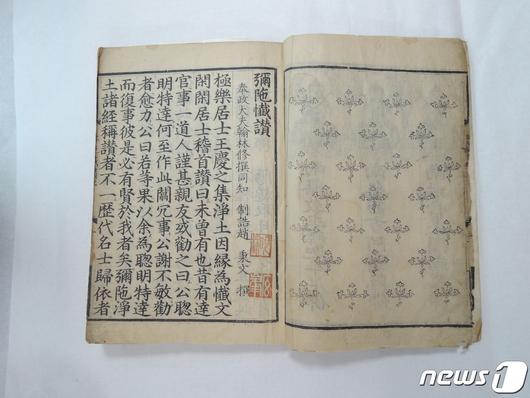 彌陁懺讃
奉政大夫翰林修撰同知 制誥趙 秉文 撰
極樂居士王慶之集淨土因緣為懺文
閑閑居士稽首讃曰未曾有也昔有達
官事一道人謹甚親友或勸之曰公聰
明特達何至作此闒冗事公謝不敏勸
者愈力公曰若等果以余為聰明特達
而復事彼是必有賢於我者矣彌陁淨
土諸經稱讃者不一歴代名士歸依者
news1